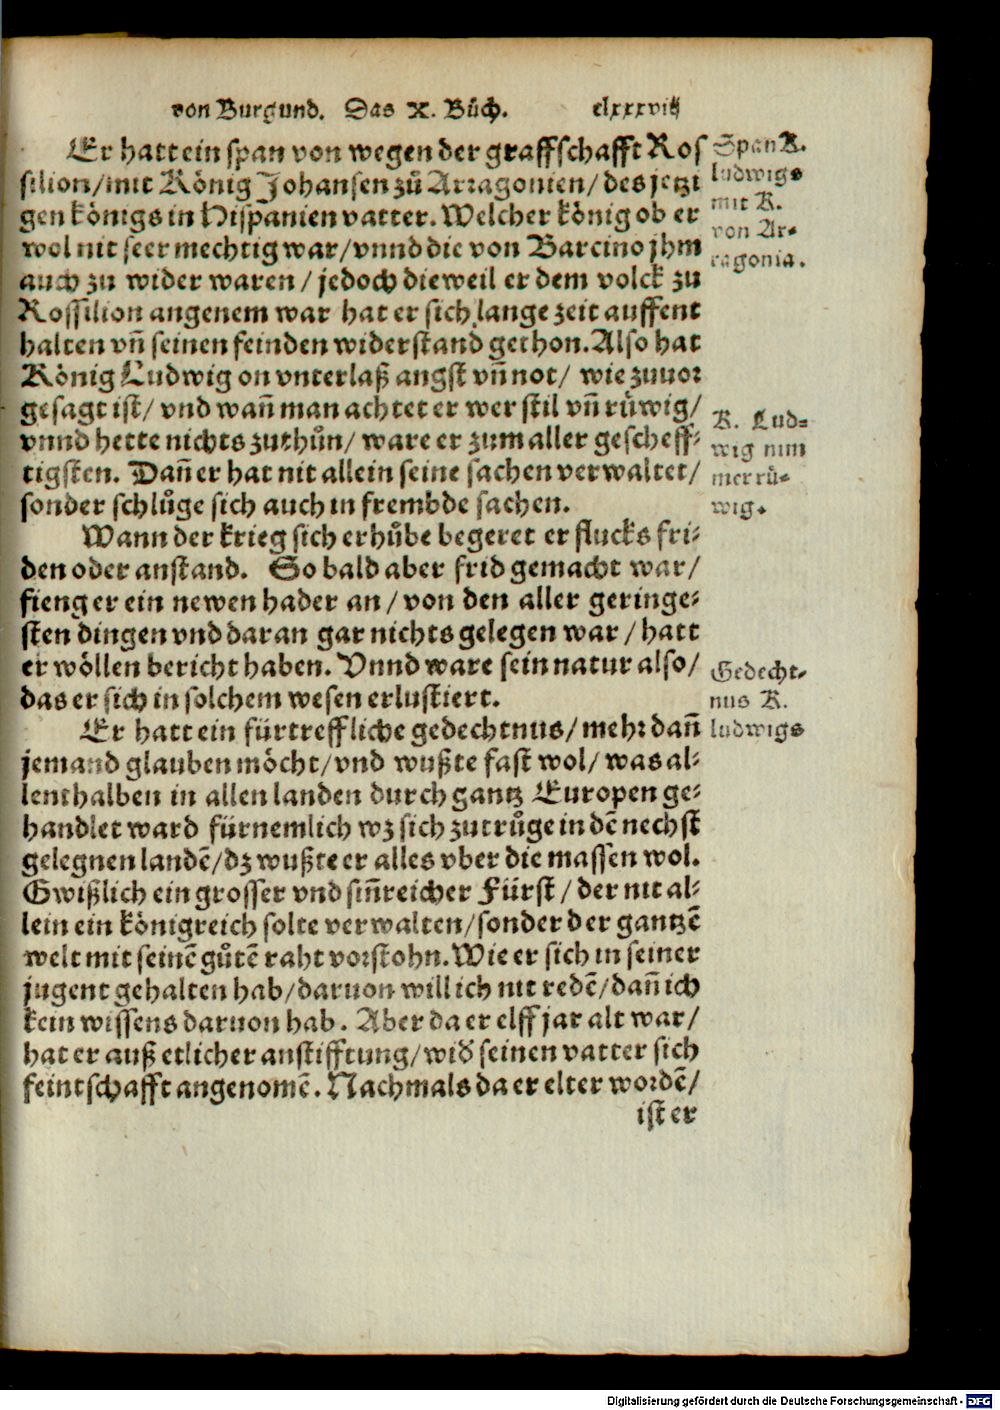 von Burgund. Das X. Bůch. clxxxviij
Er hatt ein span von wegen der graffschafft Ros
silion/mit König Johansen zů Arragonien/des jetzi
gen königs in Hispanien vatter. Welcher könig ob er
wol nit seer mechtig war/vnnd die von Barcino jhm
auch zu wider waren/jedoch dieweil er dem volck zu
Rossilion angenem war hat er sich lange zeit auffent
halten vñ seinen feinden widerstand gethon. Also hat
König Ludwig on vnterlaß angst vñ not/ wie zuuor
gesagt ist/ vnd wañ man achtet er wer stil vñ rüwig/
vnnd hette nichts zuthůn/ ware er zum aller gescheff⸗
tigsten. Dañ er hat nit allein seine sachen verwaltet/
sonder schlůge sich auch in frembde sachen.
Wann der krieg sich erhůbe begeret er flucks fri⸗
den oder anstand. So bald aber frid gemacht war/
fieng er ein newen hader an/von den aller geringe⸗
sten dingen vnd daran gar nichts gelegen war/hatt
er wöllen bericht haben. Vnnd ware sein natur also/
das er sich in solchem wesen erlustiert.
Er hatt ein fürtreffliche gedechtnus/mehr dañ
jemand glauben möcht/vnd wußte fast wol/was al⸗
lenthalben in allen landen durch gantz Europen ge⸗
handlet ward fürnemlich wz sich zutrůge in dē nechst
gelegnen landē/dz wußte er alles vber die massen wol.
Gwißlich ein grosser vnd siñreicher Fürst/der nit al⸗
lein ein königreich solte verwalten/sonder der gantzē
welt mit seinē gůtē raht vorstohn. Wie er sich in seiner
jugent gehalten hab/daruon will ich nit redē/dañ ich
kein wissens daruon hab. Aber da er elff jar alt war/
hat er auß etlicher anstifftung/wid seinen vatter sich
feintschafft angenomē. Nachmals da er elter wordē/
ist er
Span K.
ludwigs
mit K.
von Ar⸗
ragonia.
K. Lud⸗
wig nim
mer rü⸗
wig.
Gedecht⸗
nus K.
ludwigs
Digitalisierung gefördert durch die Deutsche Forschungsgemeinschaft - DFG